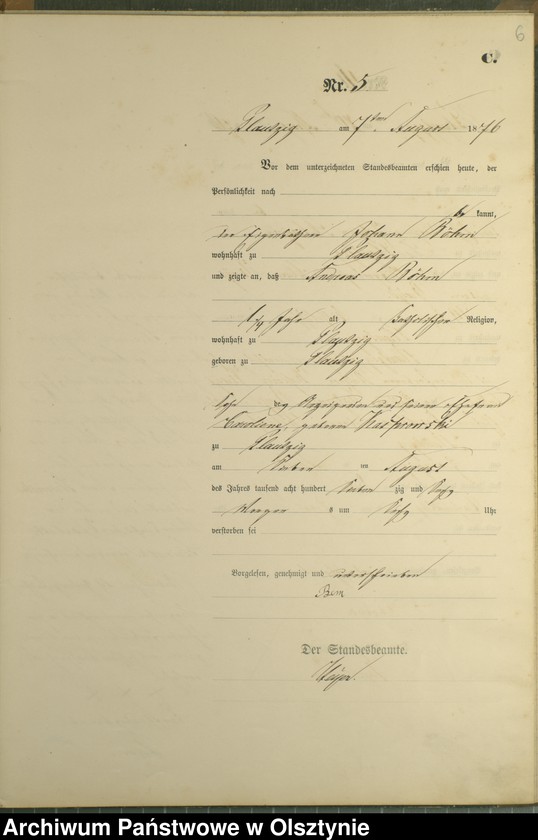 6
C.
Nr. 5
Plautzig am 7ten August 1876
Vor dem unterzeichneten Standesbeamten erschien heute, der
Persönlichkeit nach
be kannt,
der Johann Böhm
wohnhaft zu Plautzig
und zeigte an, daß Andreas Böhm
Jahr alt, katholischer Religion,
wohnhaft zu Plautzig
geboren zu Plautzig
Sohn des Anzeigenden und seiner Ehefrau
Caroline, geborene Kasprowski
zu Plautzig
am Sieben ten August
des Jahres tausend acht hundert Sieben zig und Sechs
Morgen s um Sechs Uhr
verstorben sei
Vorgelesen, genehmigt und unterschrieben
Bem
Der Standesbeamte.
Archiwum Państwowe w Olsztynie